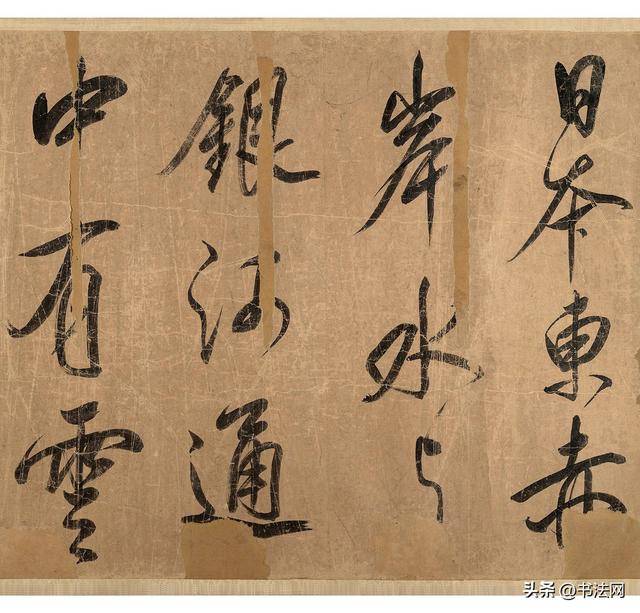 日本東赤
岸水与
銀河通
中有雲
头条 @书法网